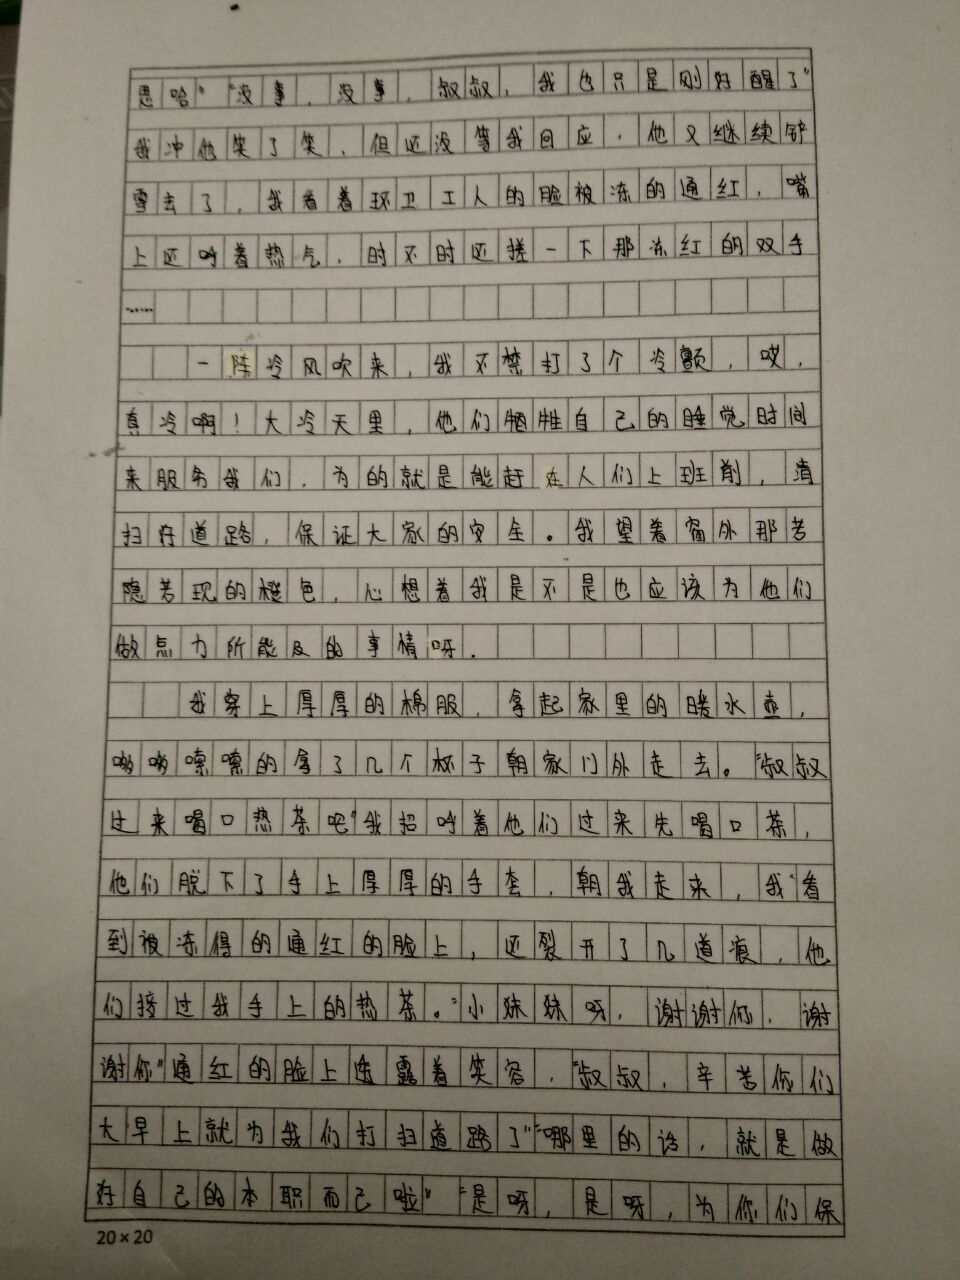 思哈”“没事,没事,叔叔,我也只是刚好醒了”
我冲他笑了笑,但还没等我回应,他又继续铲
雪去了,我看着环卫工人的脸被冻的通红,嘴
上还呼着热气,时不时还搓一下那冻红的双手
……
一阵冷风吹来,我不禁打了个冷颤,哎,
真冷啊!大冷天里,他们牺牲自己的睡觉时间
来服务我们,为的就是能赶在人们上班前,清
扫好道路,保证大家的安全。我望着窗外那若
隐若现的橙色,心想着我是不是也应该为他们
做点力所能及的事情呀.
我穿上厚厚的棉服,拿起家里的暖水壶,
哟哟嗦嗦的拿了几个杯子朝家门外走去。“叔叔
过来喝口热茶吧”我招呼着他们过来先喝口茶,
他们脱下了手上厚厚的手套,朝我走来,我看
到被冻得的通红的脸上,还裂开了几道痕,他
们接过我手上的热茶。“小妹妹呀,谢谢你,谢
谢你”通红的脸上透露着笑容,“叔叔,辛苦你们
大早上就为我们打扫道路了”“哪里的话,就是做
好自己的本职而已啦”“是呀,是呀,为你们保
20×20